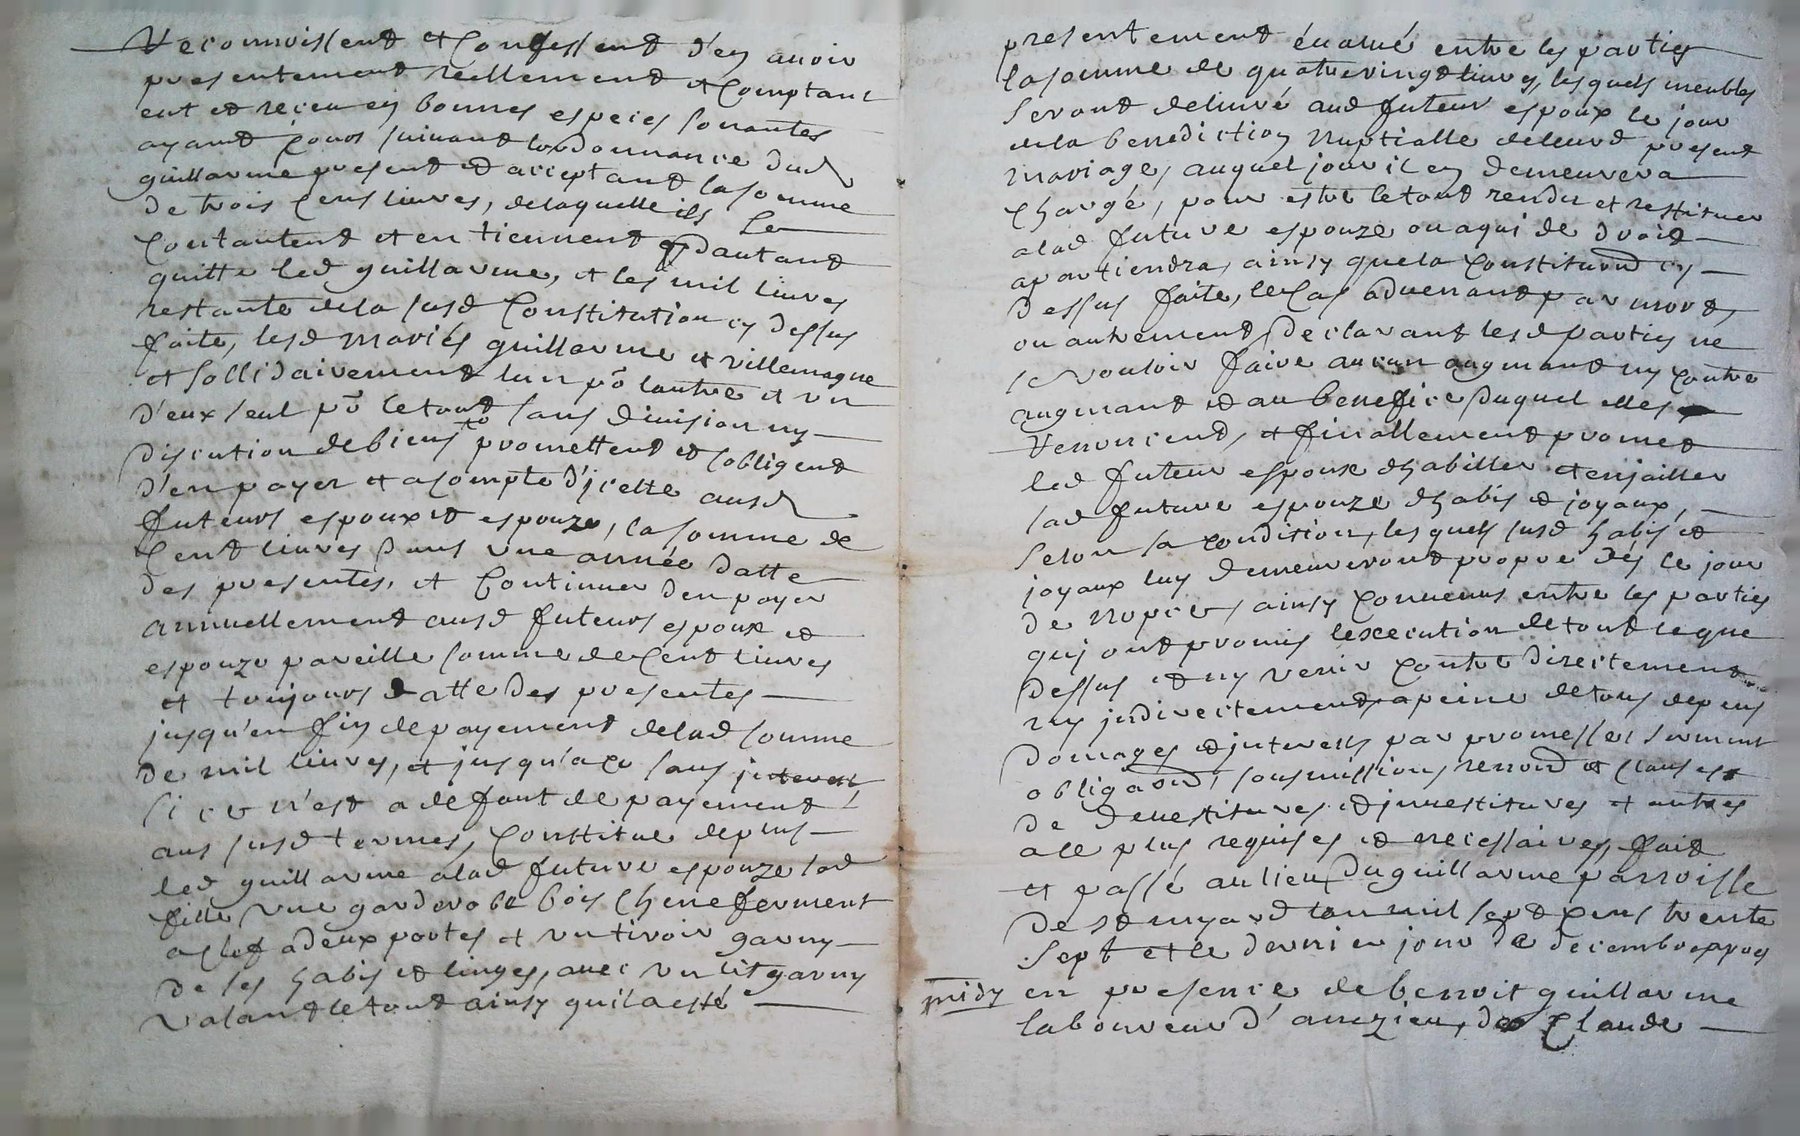 reconnoissent et confessent d'en avoir
presentement reellement et comptant
eut et receu en bonnes especes sonantes
ayant cours suivant lordonnance dud
guillarme present et acceptant la somme
de trois cens livres, de laquelle ils se
contantent et en tiennent dautant
quitte led guillarme, et les mil livres
restante de la susd constitution cy dessus
faite, lesd mariés guillarme et villemagne
et sollidairement lun po lautre et un
d'eux seul po le tout sans division ny
discution de biens promettent et sobligent
d'en payer et a compte d'icelle ausd
futeurs espoux et espouze, la somme de
cent livres dans une année datte
des presentes, et continuer den payer
annuellement ausd futeurs espoux et
espouze pareille somme de cent livres
et toujours datte des presentes
jusqu'en fin de payement de lad somme
de mil livres, et jusqu'a ce sans interest,
si ce n'est a defaut de payement
aus susd termes, constitue de plus
led guillarme a lad future espouze sad
fille une garderobe bois chene ferment
a clef a deux portes et un tiroir garny
de ses habis et linges, avec un lit garny
valant le tout ainsy qu'il a esté
presentement évalué entre les parties
la somme de quatre vingt livres, lesquels meubles
seront delivré aud futeur espoux le jour
de la benediction nuptialle de leurd present
mariage, auquel jour il en demeurera
chargé, pour estre le tout rendu et restituer
a lad future espouze ou a qui de droit
apartiendra, ainsy que la constitution cy
dessus faite, le cas advenant par mort,
ou autrement, declarant lesd parties ne
se vouloir faire aucun augmant ny contre
augmant et au benefice duquel elles
renoncent, et finallement promet
led futeur espoux dhabiller et enjailler
sad future espouze dhabis et joyaux,
selon sa condition, lesquels susd habis et
joyaux luy demeureront propre des le jour
de nopces, ainsy convenus entre les parties
qui ont promis lexecution de tout ce que
dessus et ny venir contre directement
ny indirectement a peine de tous depens
domages et interests par promesses serment
obligaon, sousmissions renond et clauses
de devestitures et investitures et autres
a ce plus requises et necessaires, fait
et passé au lieu du guillarme parroisse
de st myard lan mil sept cens trente
sept et le dernier jour de decembre apres
midy en presence de benoit guillarme
laboureur d'anezieu, de Claude